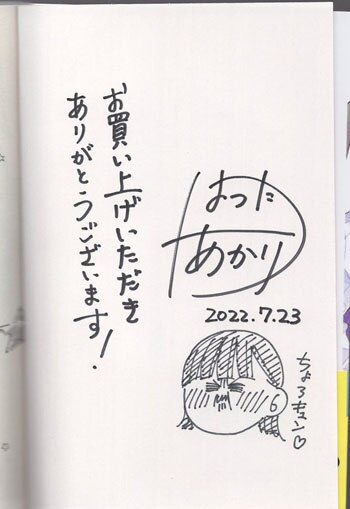 お買い上げいただき
ありがとうございます!
はつた
あかり
2022.7.23
ちょろキュン♡